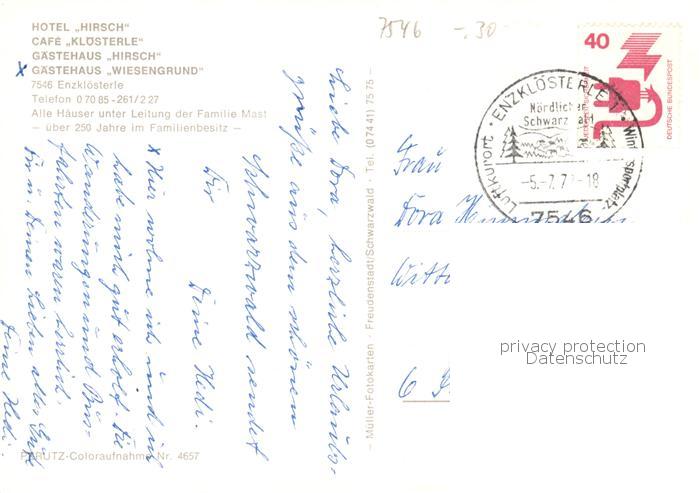 7546 -.30
HOTEL „HIRSCH"
CAFÉ „KLÖSTERLE"
GÄSTEHAUS „HIRSCH"
x GÄSTEHAUS „WIESENGRUND"
7546 Enzklösterle
Telefon 0 70 85 - 261/2 27
Alle Häuser unter Leitung der Familie Mast
– über 250 Jahre im Familienbesitz –
Liebe Dora, herzliche Urlaubs-
grüße aus dem schönen
Schwarzwald sendet
Dir
Deine Hedi.
x Hier wohne ich und
habe mich gut erholt. Die
Wanderungen und Bus-
fahrten waren herrlich.
Deinen lieben alles Gute
Deine Hedi.
PERUTZ-Coloraufnahme Nr. 4657
– Müller-Fotokarten · Freudenstadt/Schwarzwald · Tel. (07441) 75 75 –
40
DEUTSCHE BUNDESPOST
Luftkurort · ENZKLÖSTERLE 1 · Wintersportplatz
Nördlicher
Schwarzwald
–5.-7.7 -18
7546
Frau
Dora
Witt
6
privacy protection
Datenschutz